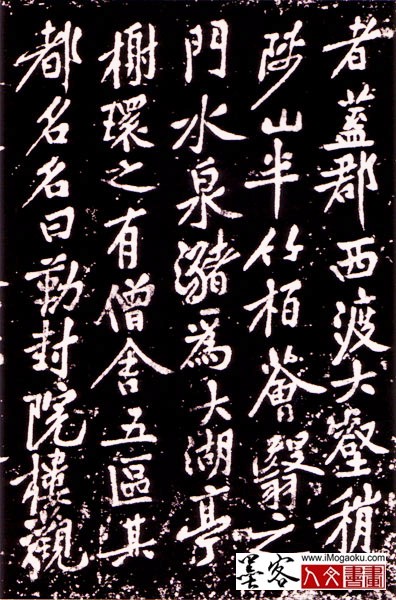 者蓋郡西渡大壑稍
陟山半竹柏薈翳之
門水泉瀦爲大湖亭
榭環之有僧舍五區其
都名名曰勤封院樓觀
墨客
www.iMogaoku.com
人文書畫